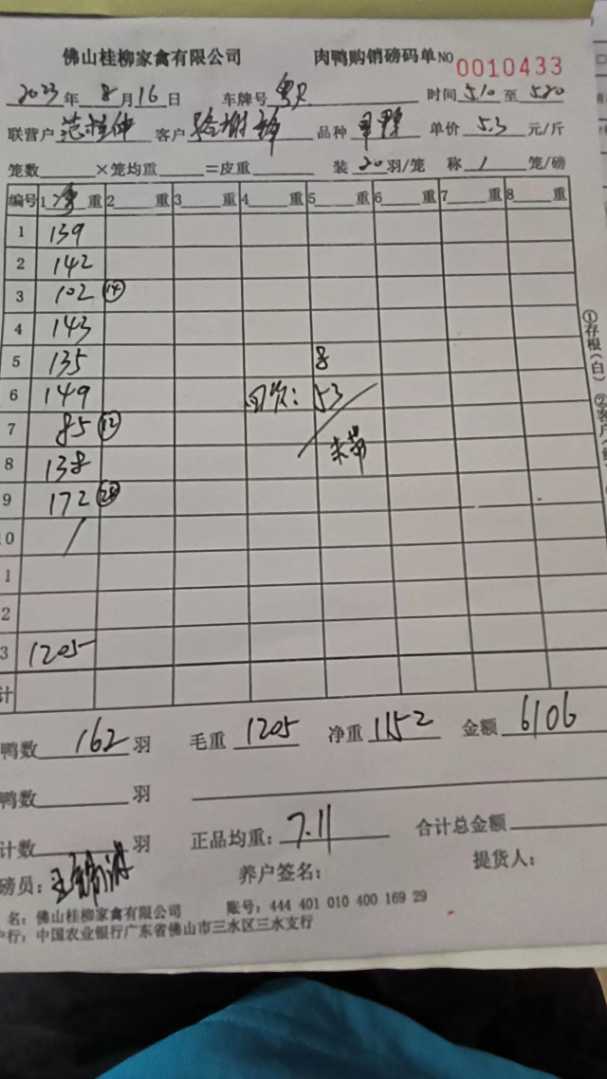 佛山桂柳家禽有限公司 肉鸭购销磅码单 NO 0010433
2023年 8月16日 车牌号 粤 时间 510 至 520
联营户 客户 品种 单价 5.3 元/斤
笼数 ×笼均重 =皮重 装 20 羽/笼 称 1 笼/磅
编号 1 净 重 2 重 3 重 4 重 5 重 6 重 7 重 8 重
1 139
2 142
3 102 ⑭
4 143
5 135 8
6 149 回收: 53
7 85 ⑫
8 138
9 172
0 /
1
2
3 1205
计
鸭数 162 羽 毛重 1205 净重 1152 金额 6106
鸭数 羽
计数 羽 正品均重: 7.11 合计总金额
磅员: 养户签名: 提货人:
名: 佛山桂柳家禽有限公司 账号: 444 401 010 400 169 29
户行: 中国农业银行广东省佛山市三水区三水支行
①存根(白) ②客户